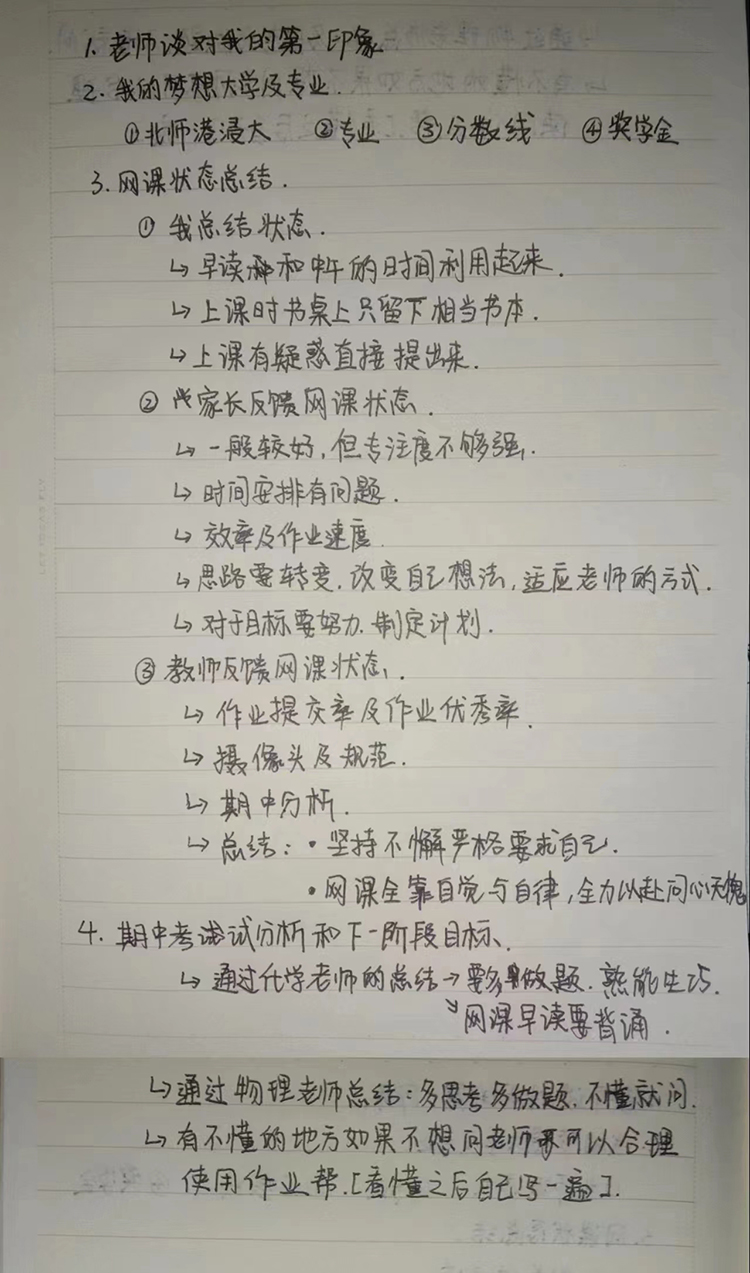 1. 老师谈对我的第一印象
2. 我的梦想大学及专业.
①北师港浸大 ②专业 ③分数线 ④奖学金
3. 网课状态总结.
① 我总结状态.
↳ 早读和中午的时间利用起来.
↳ 上课时书桌上只留下相当书本.
↳ 上课有疑惑直接提出来.
② 家长反馈网课状态.
↳ 一般较好,但专注度不够强.
↳ 时间安排有问题.
↳ 效率及作业速度
↳ 思路要转变.改变自己想法,适应老师的方式.
↳ 对于目标要努力.制定计划.
③ 教师反馈网课状态.
↳ 作业提交率及作业优秀率.
↳ 摄像头及规范.
↳ 期中分析.
↳ 总结: · 坚持不懈严格要求自己.
· 网课全靠自觉与自律,全力以赴问心无愧
4. 期中考试分析和下一阶段目标.
↳ 通过化学老师的总结→要多做题.熟能生巧.
↘网课早读要背诵.
↳通过物理老师总结:多思考多做题.不懂就问.
↳ 有不懂的地方如果不想问老师可以合理
使用作业帮.[看懂之后自己写一遍].